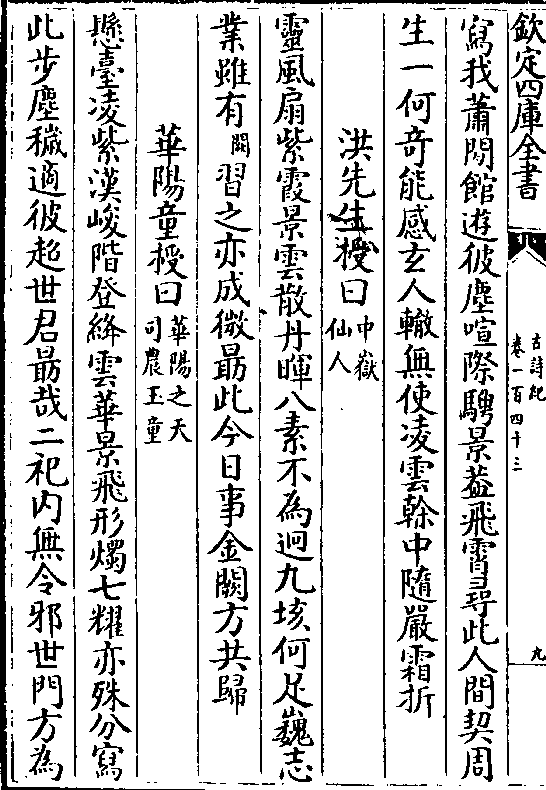 欽定四庫全書
古詩紀
卷一百四十三
九
寫我蕭閒館遊彼塵喧際騁景葢飛霄尋此人間契周
生一何奇能感玄人轍無使凌雲榦中隨嚴霜折
洪先生授曰中嶽
仙人
靈風扇紫霞景雲散丹暉八素不為迥九垓何足巍志
業雖有闕習之亦成微最此今日事金闕方共歸
華陽童授曰華陽之天
司農玉童
懸臺凌紫漢峻階登絳雲華景飛形燭七耀亦殊分寫
此步塵穢適彼超世君最哉二祀内無令邪世門方為